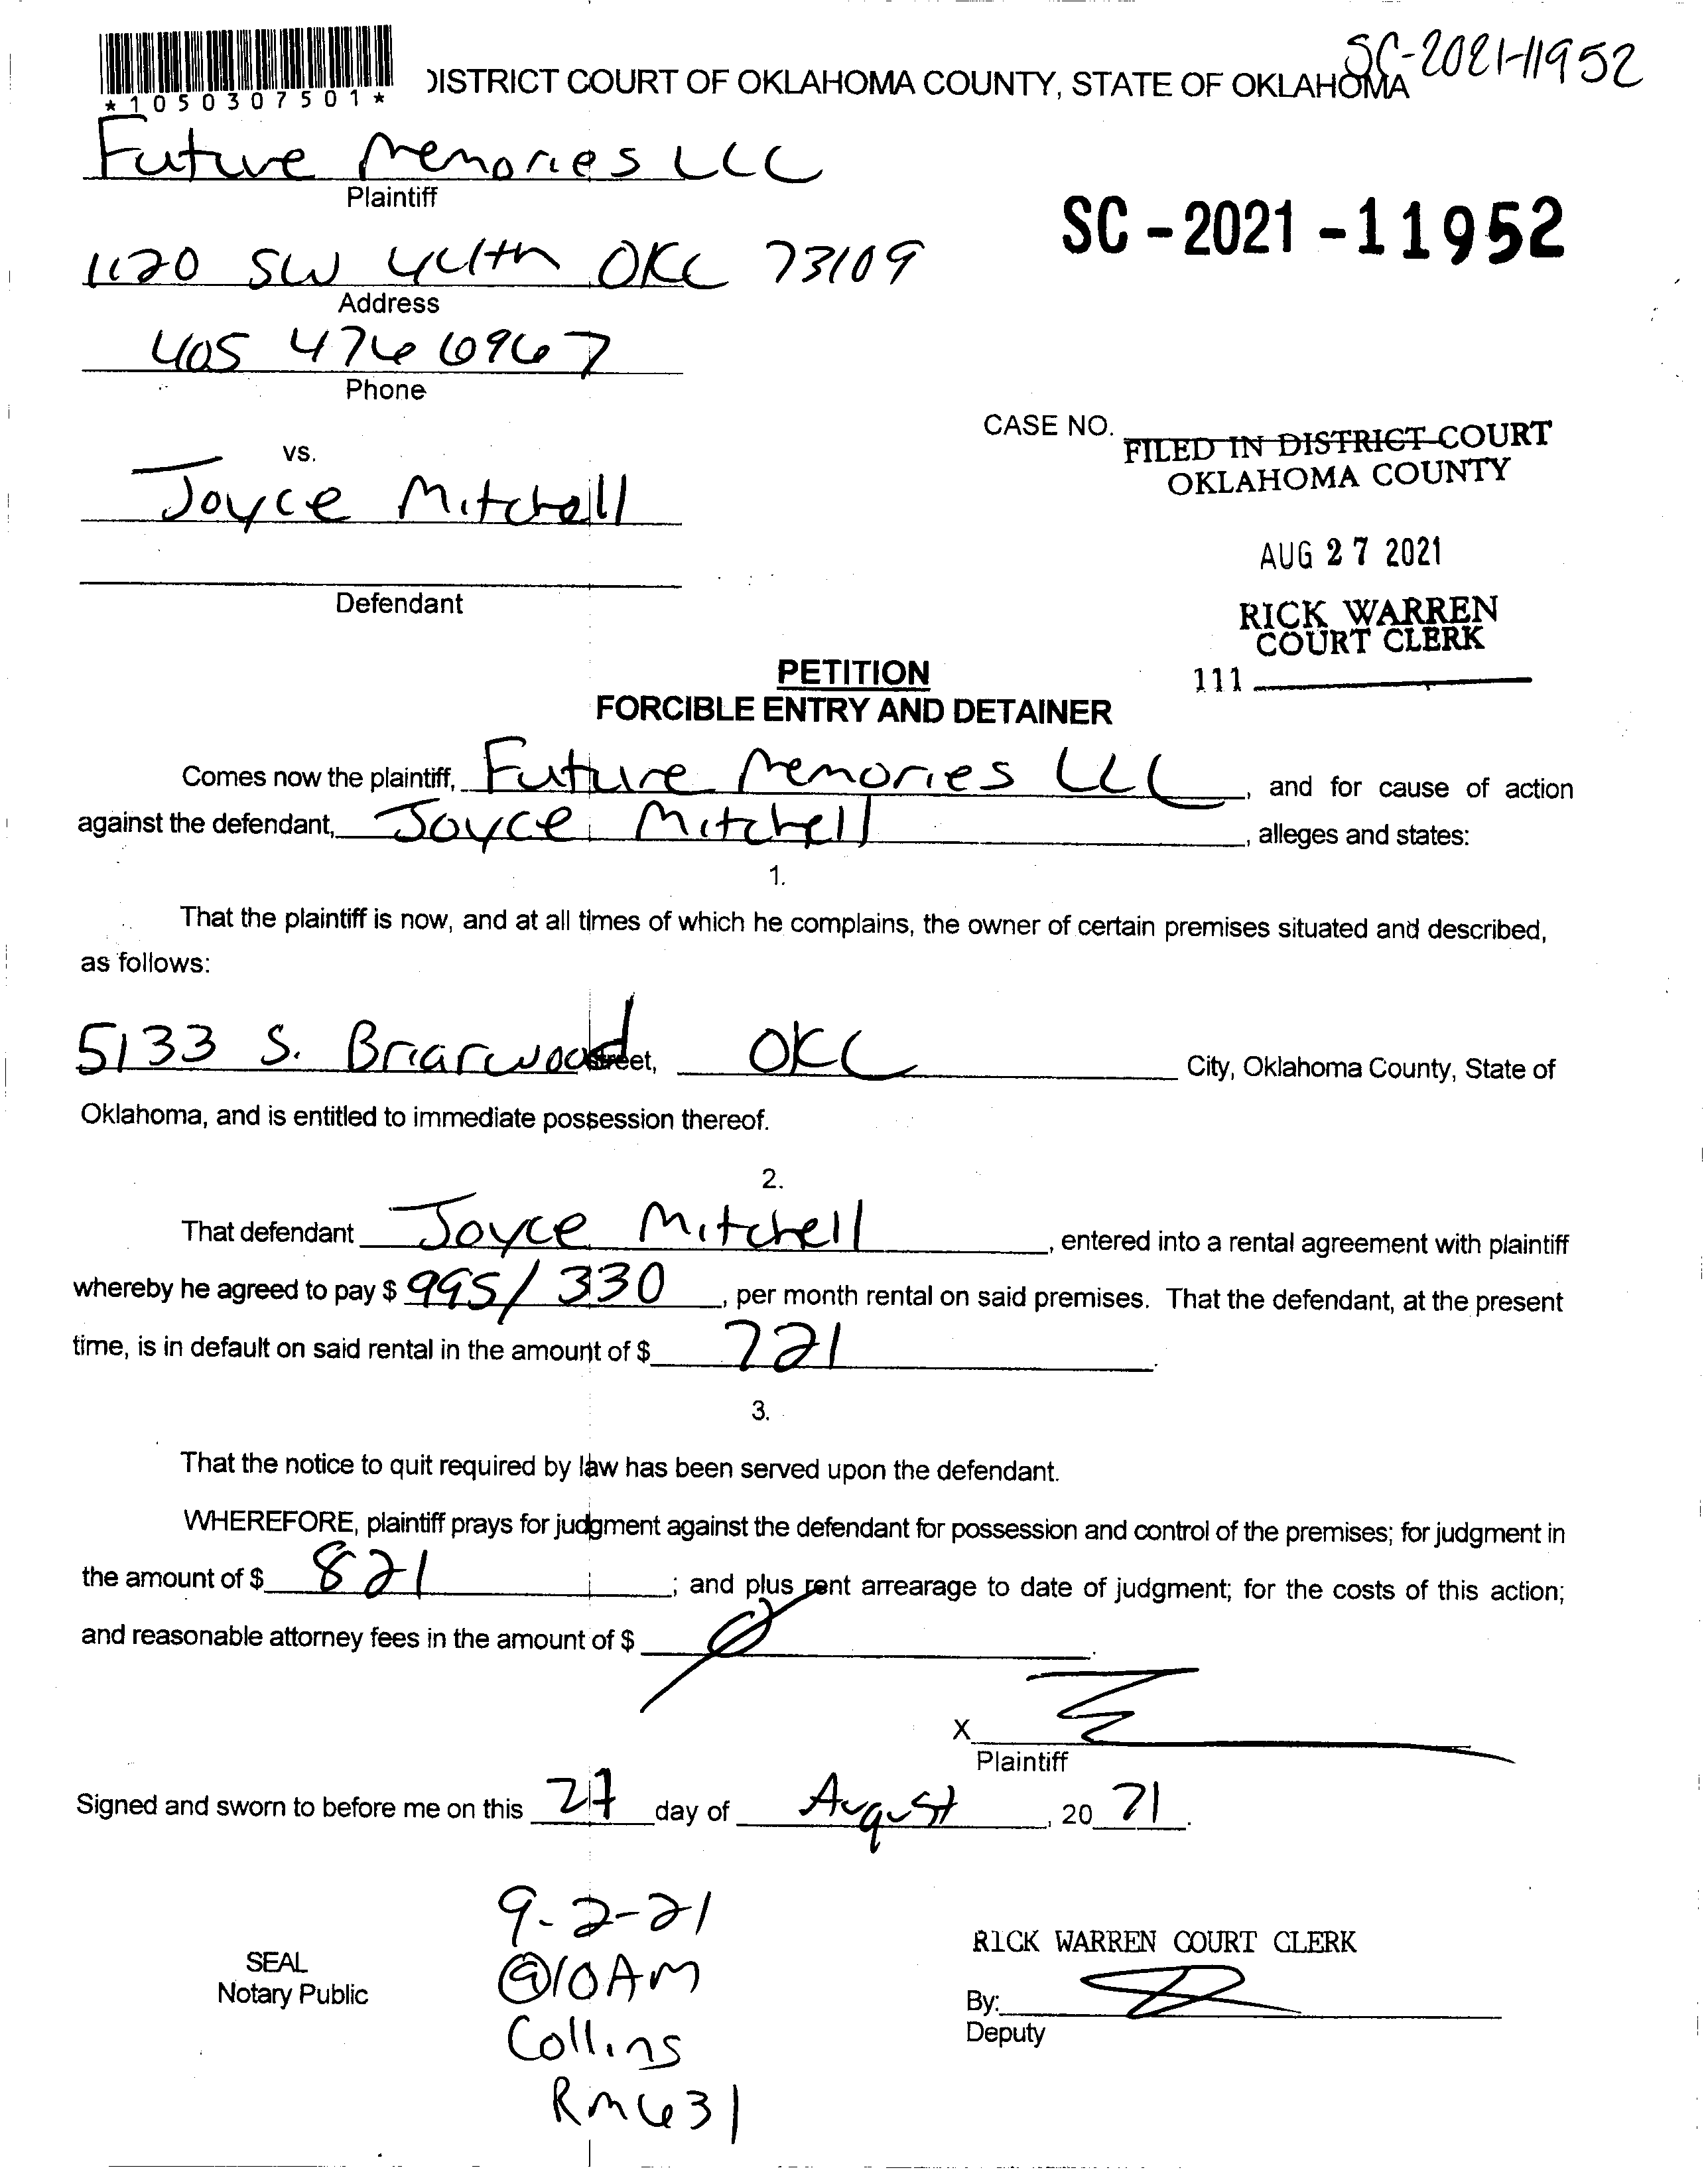 SC-2021-11952
*1050307501*
DISTRICT COURT OF OKLAHOMA COUNTY, STATE OF OKLAHOMA
Future Memories LLC
Plaintiff
SC-2021-11952
1120 SW 44th OKC 73109
Address
405 476 6967
Phone
CASE NO.
FILED IN DISTRICT COURT
OKLAHOMA COUNTY
vs.
Joyce Mitchell
AUG 27 2021
Defendant
RICK WARREN
COURT CLERK
111
PETITION
FORCIBLE ENTRY AND DETAINER
Comes now the plaintiff, Future Memories LLC, and for cause of action
against the defendant, Joyce Mitchell, alleges and states:
1.
That the plaintiff is now, and at all times of which he complains, the owner of certain premises situated and described,
as follows:
5133 S. Briarwood street, OKC City, Oklahoma County, State of
Oklahoma, and is entitled to immediate possession thereof.
2.
That defendant Joyce Mitchell, entered into a rental agreement with plaintiff
whereby he agreed to pay $ 995/330, per month rental on said premises. That the defendant, at the present
time, is in default on said rental in the amount of $ 721.
3.
That the notice to quit required by law has been served upon the defendant.
WHEREFORE, plaintiff prays for judgment against the defendant for possession and control of the premises; for judgment in
the amount of $ 821; and plus rent arrearage to date of judgment; for the costs of this action;
and reasonable attorney fees in the amount of $ 0.
X
Plaintiff
Signed and sworn to before me on this 27 day of August, 20 21.
9-2-21
@10AM
Collins
Rm 631
SEAL
Notary Public
RICK WARREN COURT CLERK
By:
Deputy